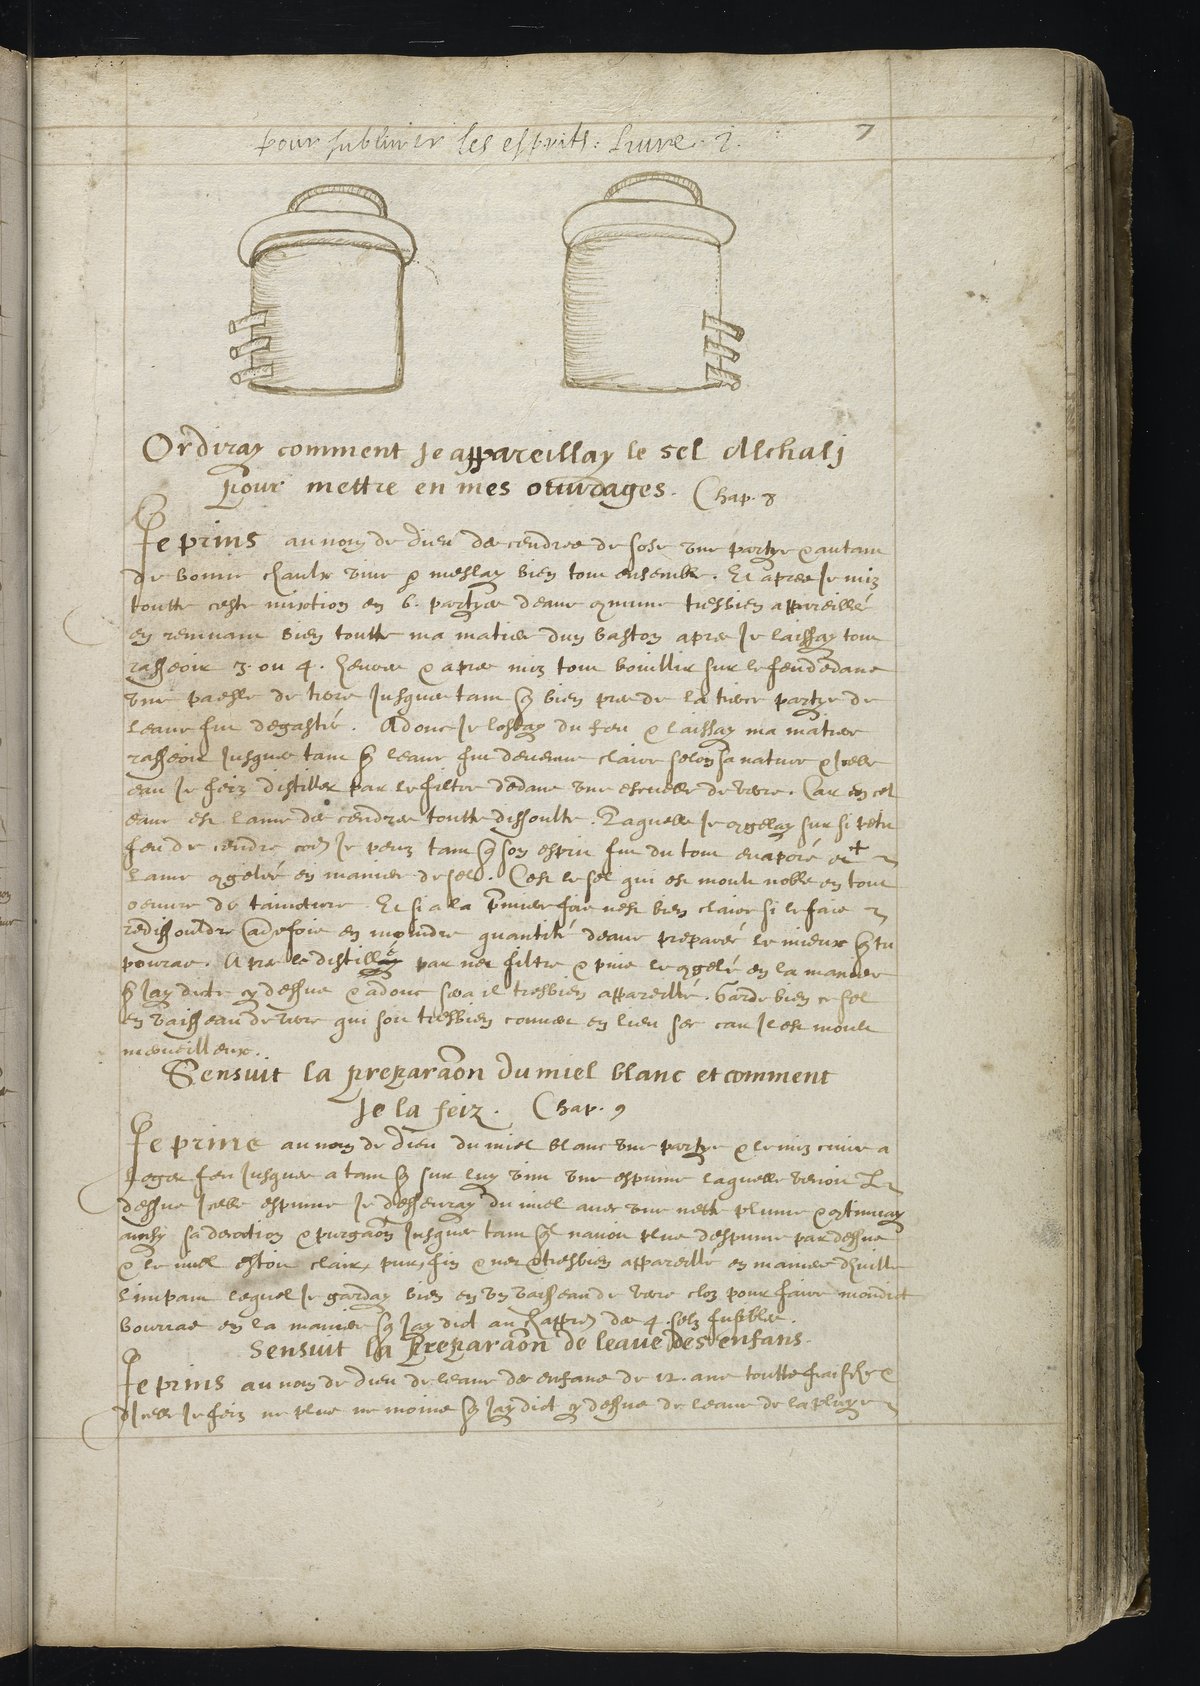 pour sublimer les esprits. Livre. I.
7
Or diray comment Je appareillay le sel Alchalj
Pour mettre en mes ouvrages. Chap. 8
Je prins au nom de dieu des cendres de sode une partye & autant
de bonne chaulx vive & meslay bien tout ensemble. Et apres Je mis
toutte ceste mixtion en 6. partyes deaue comune tresbien appareillé
en remuant bien toutte ma matiere dun baston apres Je laissay tout
rasseoir 3. ou 4. heures & apres mis tout bouillir sur le feu dedans
une paesle de terre Jusques tant que bien pres de la tierce partye de
leaue fut degastée. Adonc Je lostay du feu & laissay ma matiere
rasseoir Jusques tant que leaue fut devenue claire selon sa nature & Icelle
eau Je feiz distiller par le filtre dedans une escuelle de verre. Car en cel
eaue est lame des cendres toutte dissoulte. Laquelle Je congelay sur si petit
feu de cendre com Je peuz tant que son esprit fut du tout evaporé et
lame congelée en maniere de sel. Cest le sel qui est moult noble en tout
oeuvre de taincture. Et si a la premiere fois nest bien claire si le fais
redissouldre autrefois en moindre quantité deaue preparée le mieux que tu
pourras. Apres le distillé par net filtre & puis le congelé en la maniere
que Jay dicte cy dessus & adonc sera il tresbien appareillé. Garde bien ce sel
en vaisseau de verre qui soit tresbien couvert en lieu sec car Il est moult
merveilleux.
Sensuit la preparaon du miel blanc et comment
Je la feiz. Chap. 9
Je prins au nom de dieu du miel blanc une partye & le mis cuire a
leger feu Jusques a tant que sur luy vint une espume laquelle venoit
dessus Icelle espume Je desseuray du miel avec une nette plume & continuay
ainsy sa decoction & purgaon Jusques tant quil navoit plus despume par dessus
& le miel estoit clair, pur, fin & net & tresbien appareillé en maniere dhuille
limpant lequel Je garday bien en un vaisseau de verre clos pour faire mondict
bourras en la maniere que Jay dict au chappitre des 4. selz fusibles.
Sensuit la Preparaon de leaue des enfans.
Je prins au nom de dieu de leaue des enfans de 12. ans toutte fraische &
dIcelle Je feiz ne plus ne moins que Jay dict cy dessus de leaue de la pluye